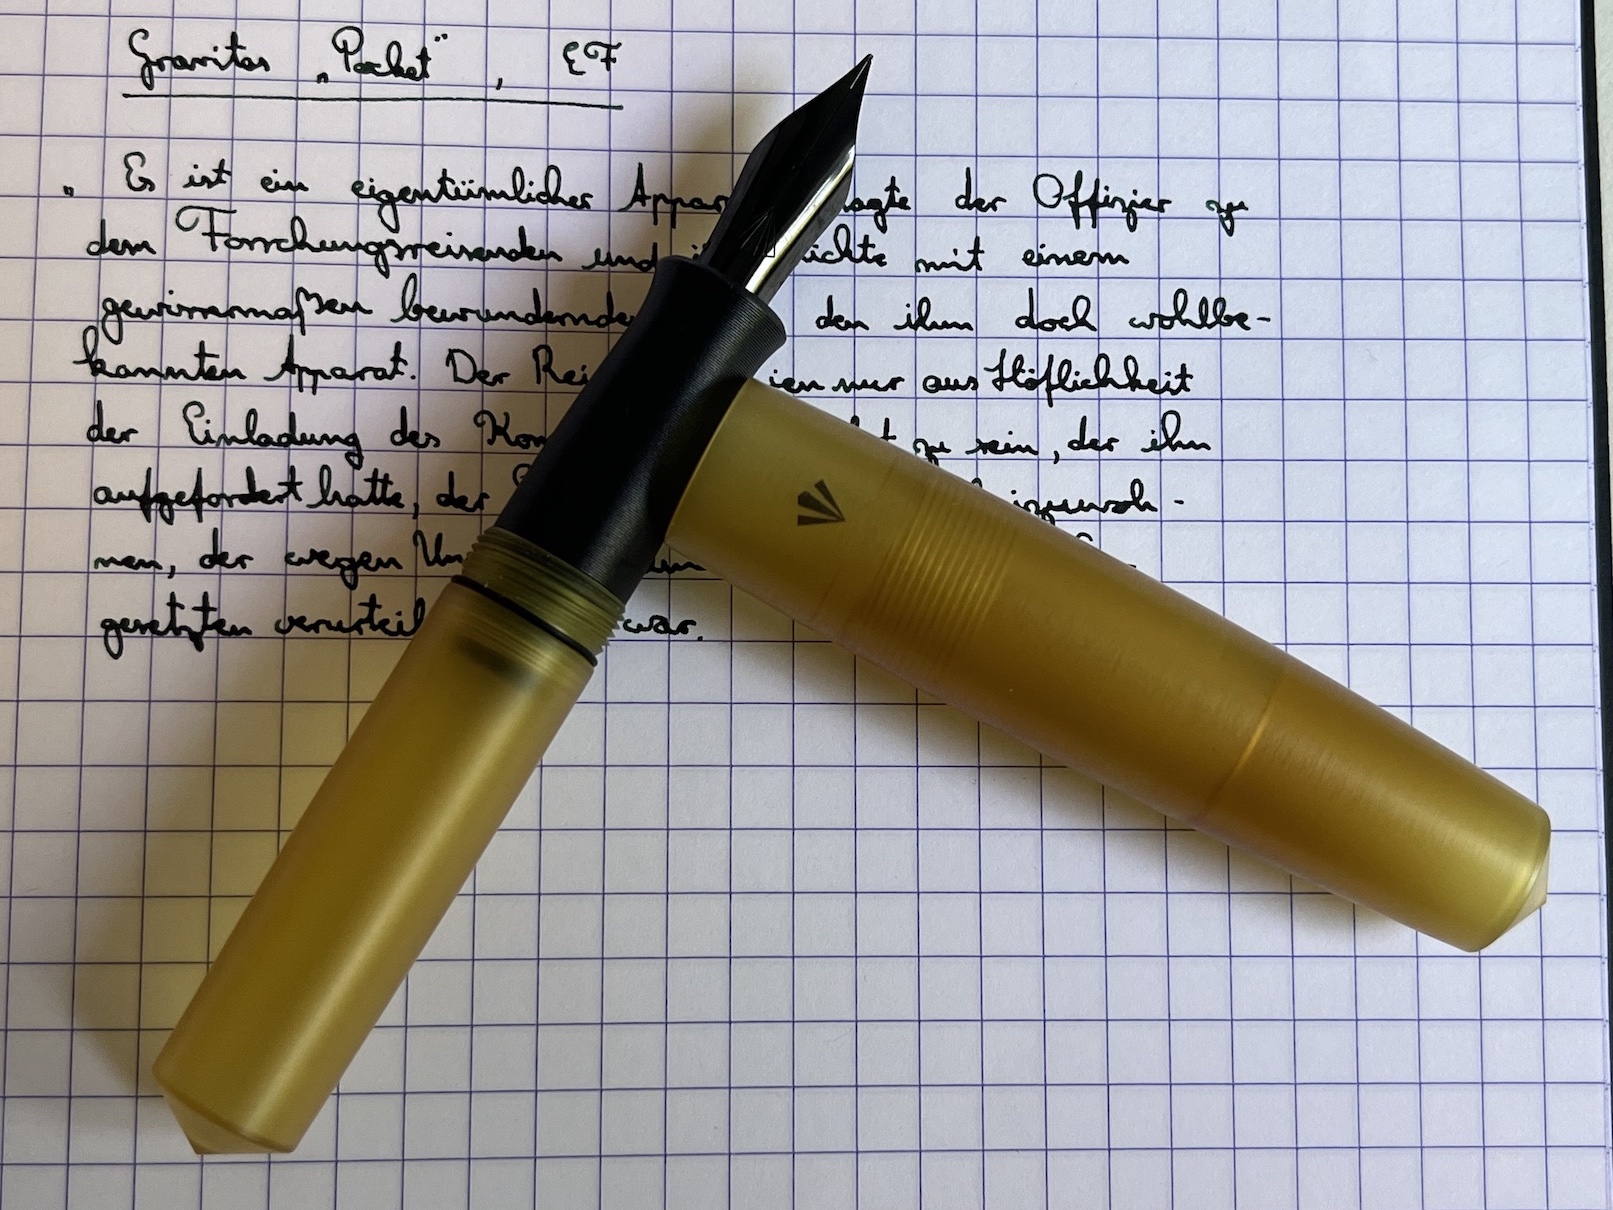 Gravitas „Pocket“, EF
„Es ist ein eigentümlicher Appar sagte der Offizier zu
dem Forschungsreisenden und ichte mit einem
gewissermaßen bewundernde den ihm doch wohlbe-
kannten Apparat. Der Rei ien nur aus Höflichkeit
der Einladung des Kom t zu sein, der ihn
aufgefordert hatte, der izuwoh-
nen, der wegen Un
gesetzten verurteil war.